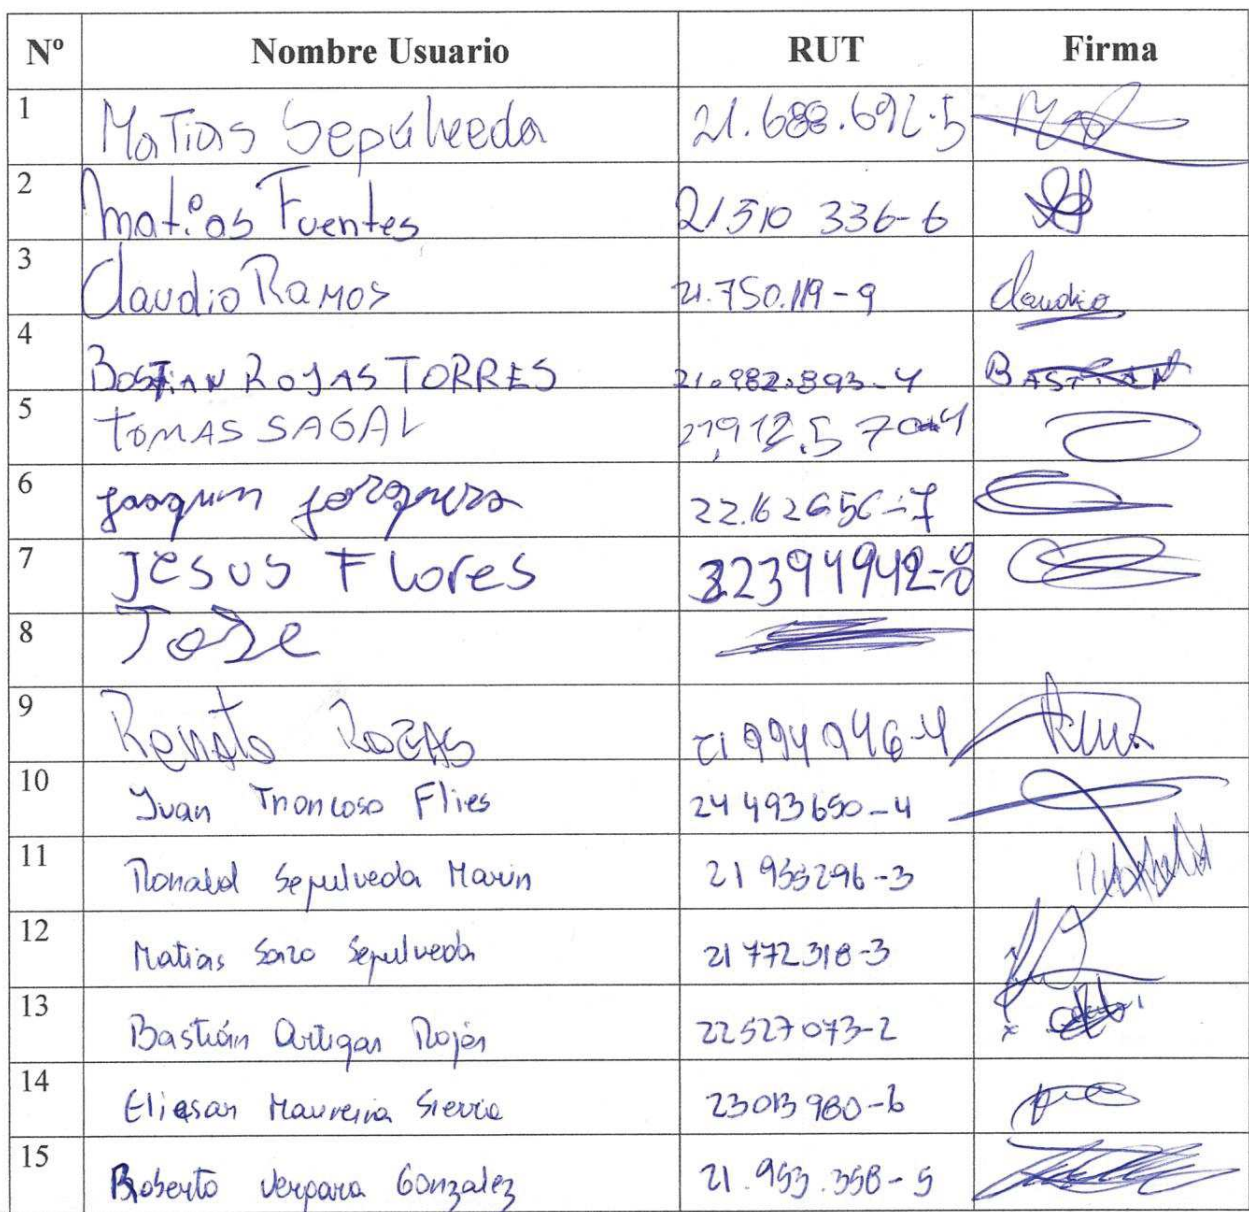 Nº Nombre Usuario RUT Firma
1 Matias Sepúlveda 21.688.692-5
2 Matias Fuentes 21510 336-6
3 Claudio Ramos 21.750.119-9 Claudio
4 BASTIAN ROJAS TORRES 21.982.893-4 BASTIAN
5 TOMAS SAGAL 21,912.570-4
6 Joaquin Jorquera 22.162656-7
7 Jesus Flores 22394942-8
8 Jose
9 Renato Rozas 21 994 946-4
10 Juan Troncoso Flies 24 493650-4
11 Ronald Sepulveda Marin 21 955296-3
12 Matias Sazo Sepulveda 21 772318-3
13 Bastián Artigas Rojas 22527073-2
14 Eliasar Maureira Sierra 23013980-6
15 Roberto Vergara Gonzalez 21.953.358-5